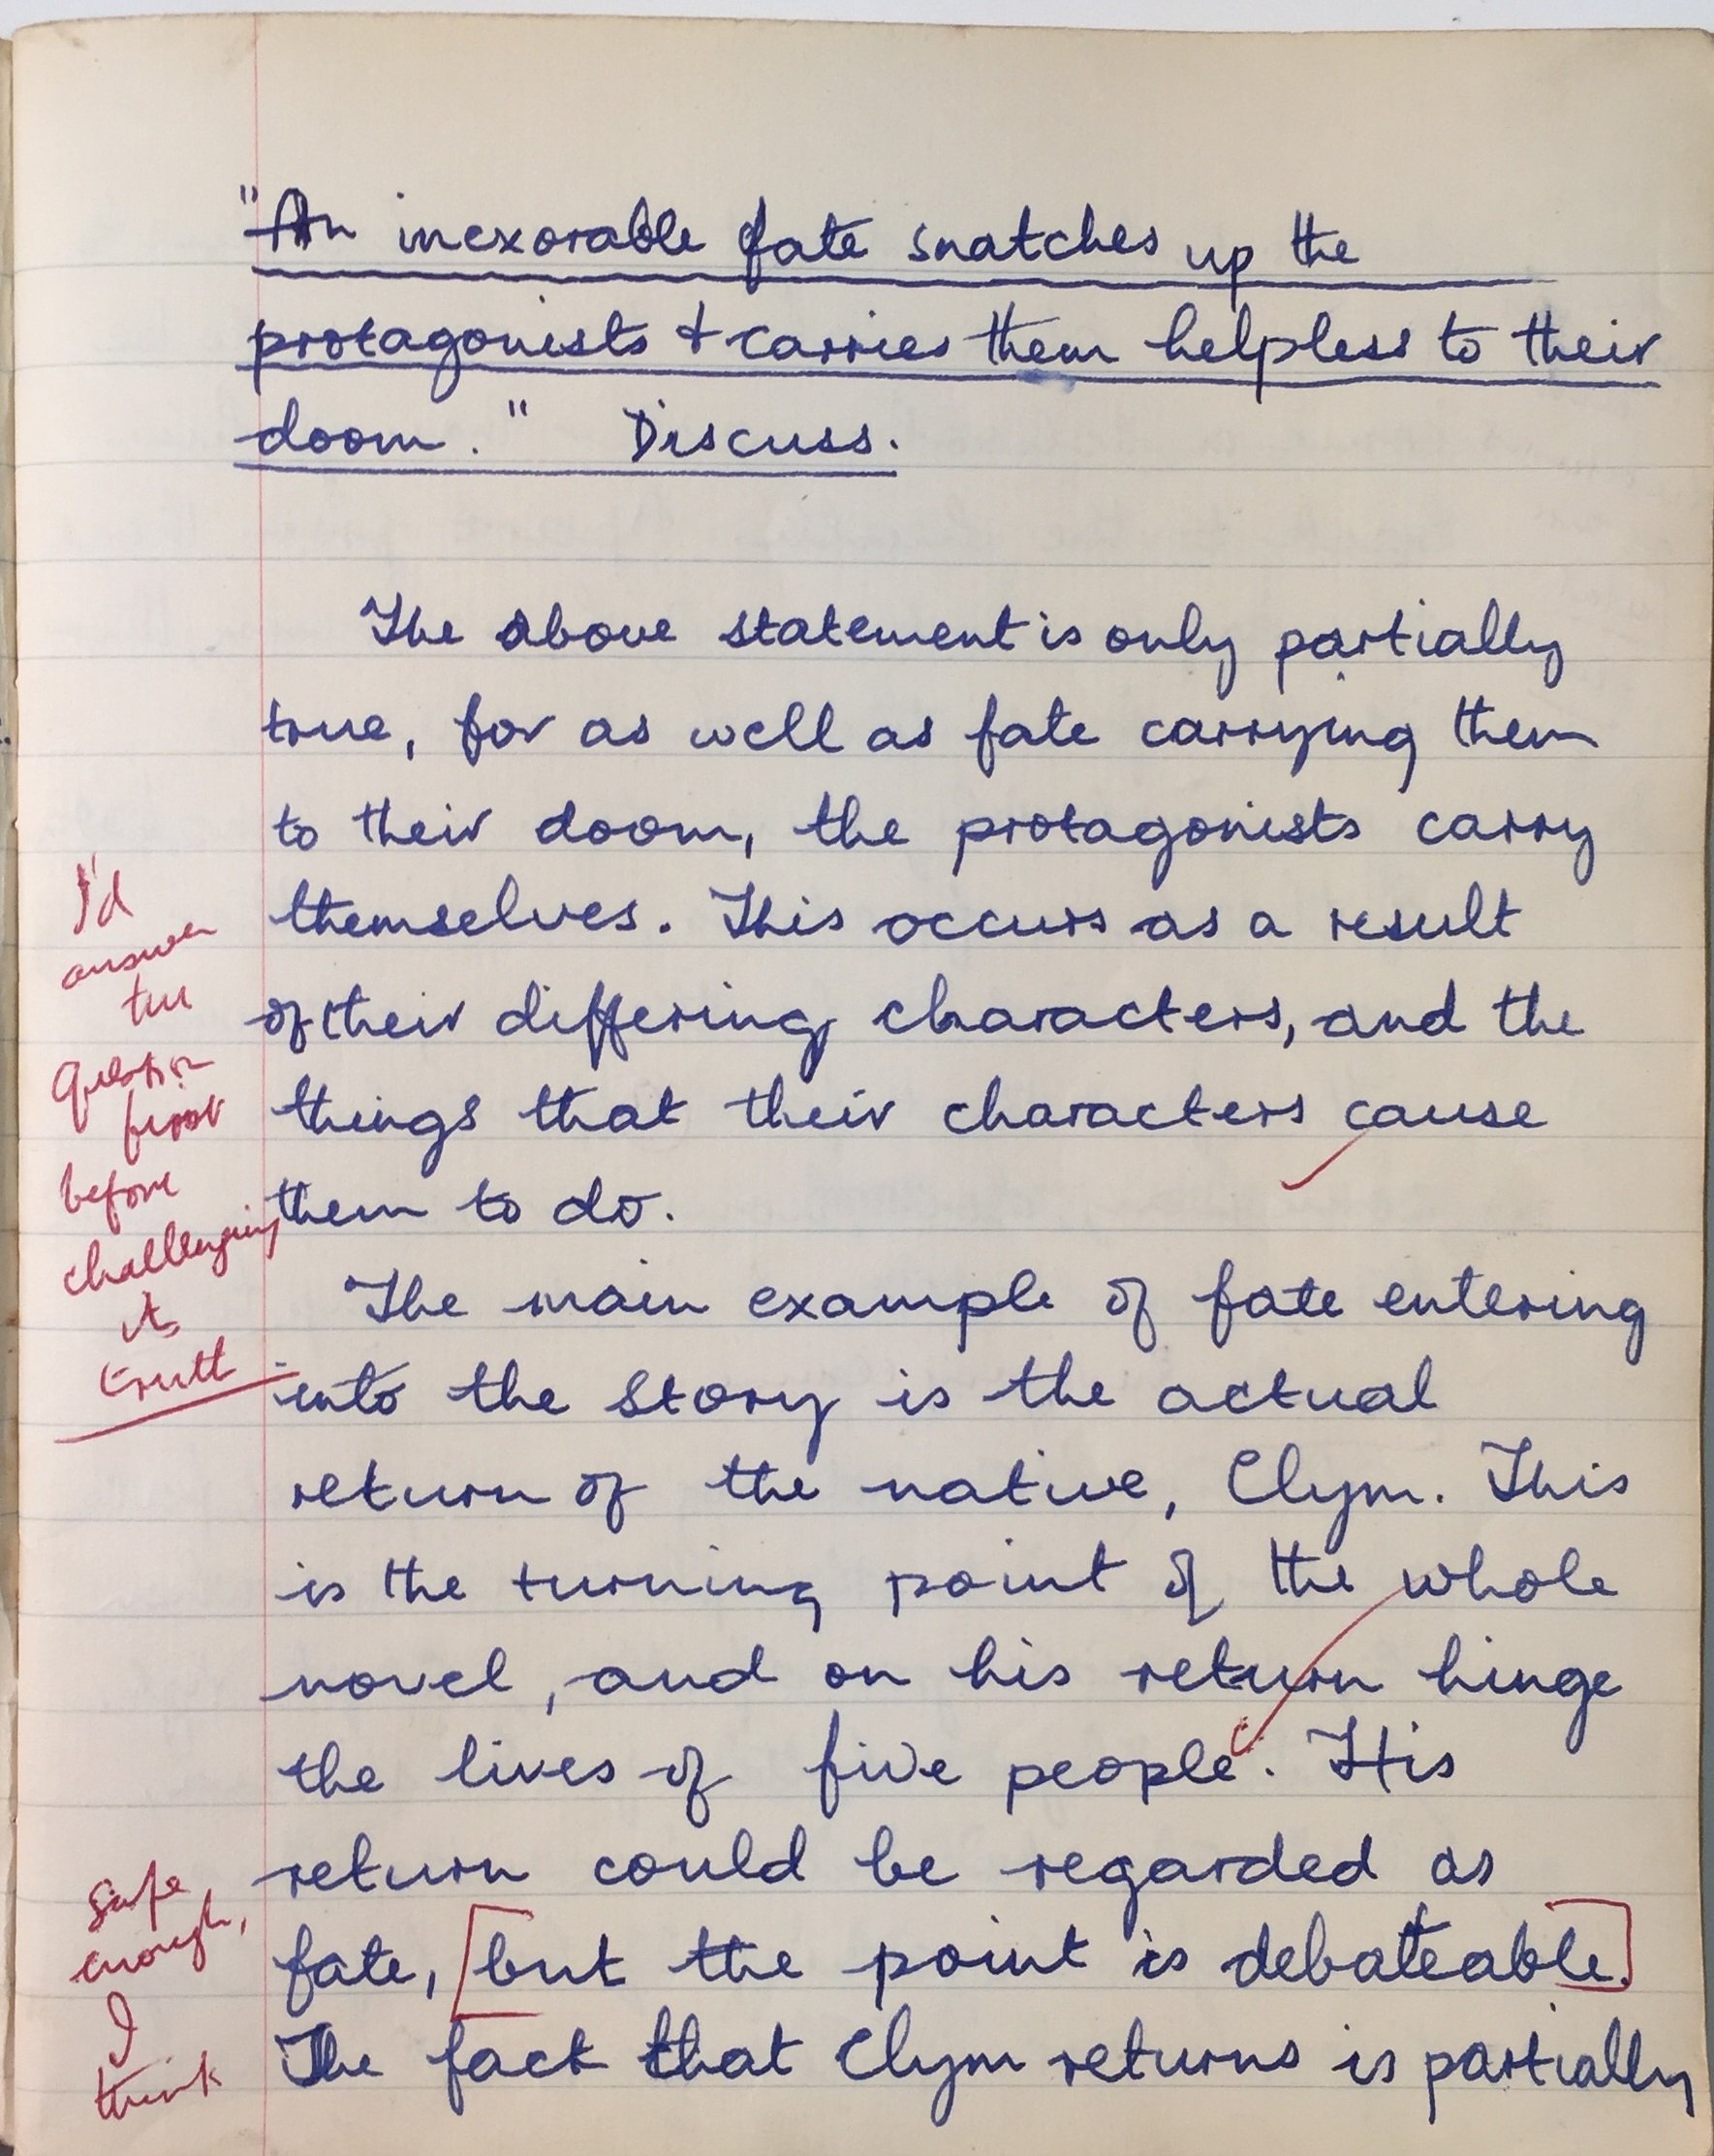 "An inexorable fate snatches up the
protagonists + carries them helpless to their
doom." Discuss.
The above statement is only partially
true, for as well as fate carrying them
to their doom, the protagonists carry
themselves. This occurs as a result
of their differing characters, and the
things that their characters cause
them to do.
I'd
answer
the
question
first
before
challenging
its
truth
The main example of fate entering
into the story is the actual
return of the native, Clym. This
is the turning point of the whole
novel, and on his return hinge
the lives of five people. His
return could be regarded as
fate, [but the point is debateable.]
The fact that Clym returns is partially
Safe
enough,
I
think